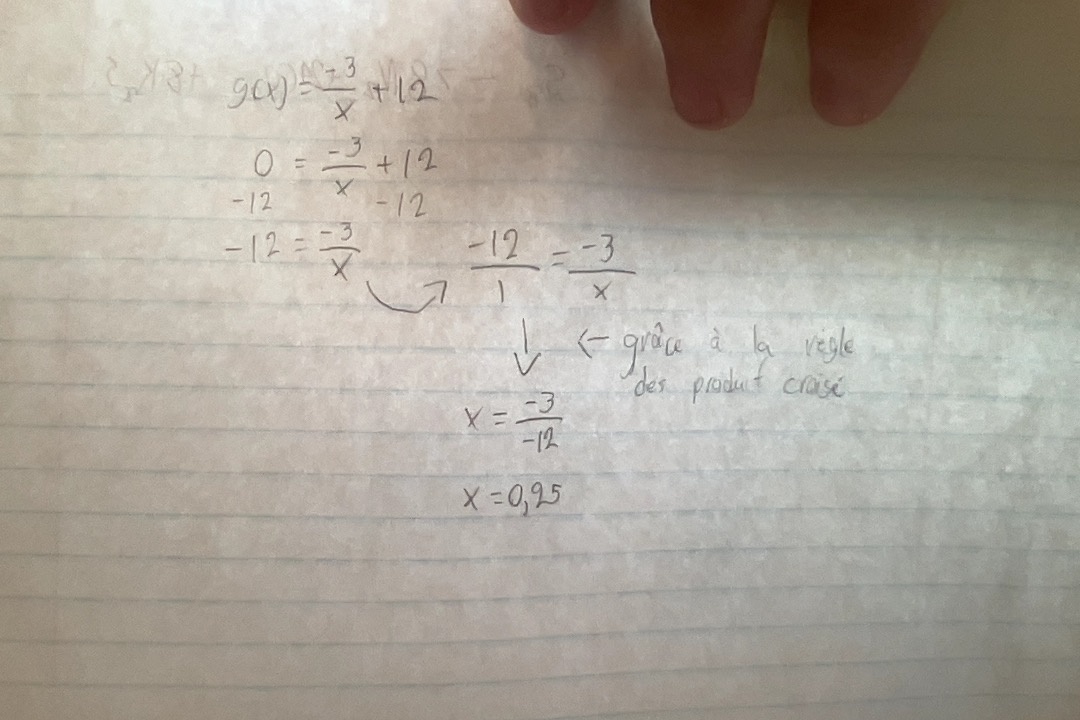 g(x) = -3/x + 12
0 = -3/x + 12
-12 -12
-12 = -3/x
-12/1 = -3/x
← grâce à la règle
des produit croisé
x = -3/-12
x = 0,25